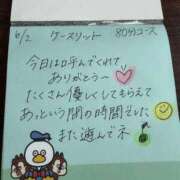 6/2 ケースリット 80分コース
今日は呼んでくれて
ありがとう〜
たくさん優しくしてもらえて
あっという間の時間でした
また遊んでネ